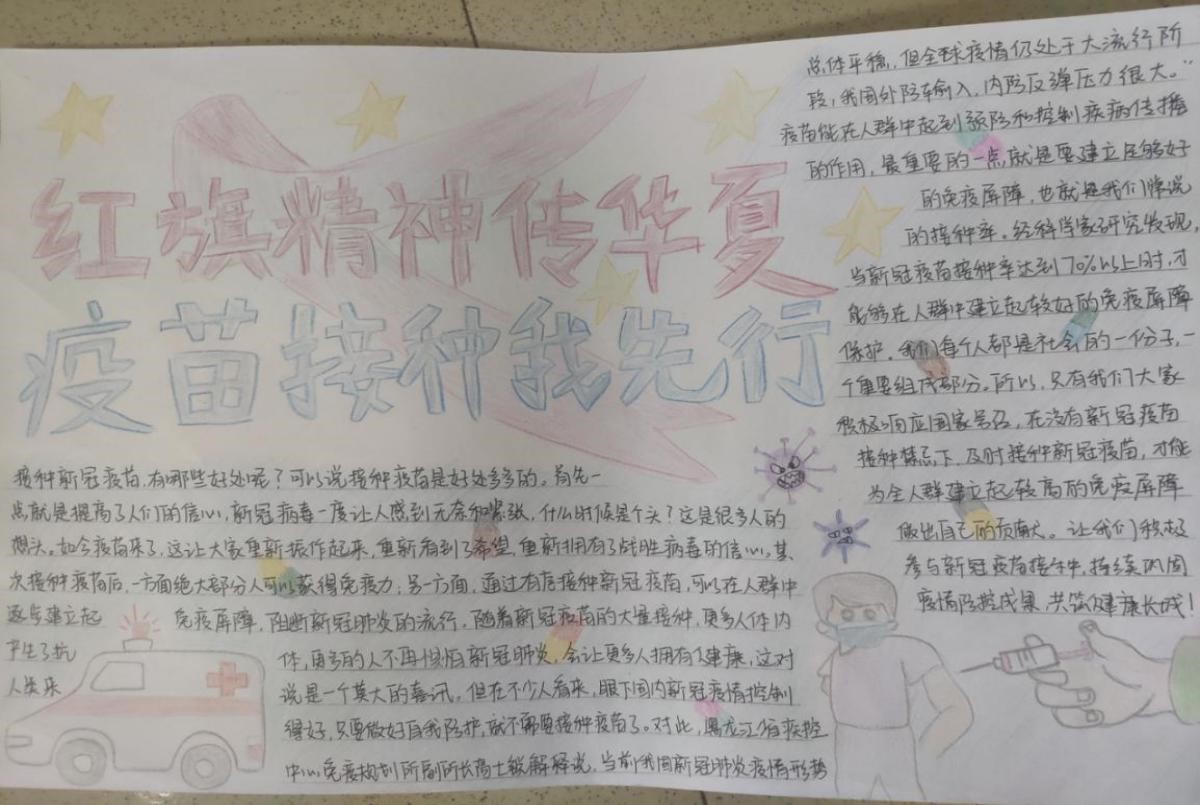 红旗精神传华夏
疫苗接种我先行
接种新冠疫苗,有哪些好处呢?可以说接种疫苗是好处多多的。首先一
点就是提高了人们的信心,新冠病毒一度让人感到无奈和紧张,什么时候是个头?这是很多人的
想头。如今疫苗来了,这让大家重新振作起来,重新看到了希望,重新拥有了战胜病毒的信心。其
次接种疫苗后,一方面绝大部分人可以获得免疫力;另一方面,通过有序接种新冠疫苗,可以在人群中
逐步建立起 免疫屏障,阻断新冠肺炎的流行。随着新冠疫苗的大量接种,更多人体内
产生了抗 体,更多的人不再惧怕新冠肺炎,会让更多人拥有健康,这对
人类来 说是一个莫大的喜讯。但在不少人看来,眼下国内新冠疫情控制
得好,只要做好自我防护,就不需要接种疫苗了。对此,黑龙江省疾控
中心免疫规划所副所长高士锐解释说,当前我国新冠肺炎疫情形势
总体平稳,但全球疫情仍处于大流行阶
段,我国外防输入,内防反弹压力很大。
疫苗能在人群中起到预防和控制疾病传播
的作用,最重要的一点就是要建立足够好
的免疫屏障,也就是我们常说
的接种率。经科学家研究发现,
当新冠疫苗接种率达到70%以上时,才
能够在人群中建立起较好的免疫屏障
保护。我们每个人都是社会的一份子,一
个重要组成部分。所以,只有我们大家
积极响应国家号召,在没有新冠疫苗
接种禁忌下,及时接种新冠疫苗,才能
为全人群建立起较高的免疫屏障
做出自己的贡献。让我们积极
参与新冠疫苗接种,持续巩固
疫情防控成果,共筑健康长城!